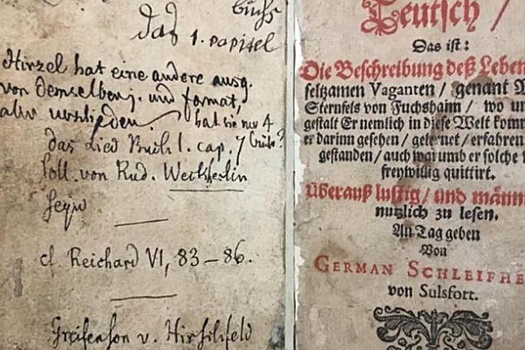 buchs
das 1. capitel
Hirzel hat eine andere ausg.
von demselben j. und format,
aber verschieden. hat sie nur 4
bücher?
das Lied Buch 1. cap. 7
soll von Rud. Weckherlin
seyn
cf. Reichard VI, 83–86.
Greifenson v. Hirschfeld
Teutsch /
Das ist:
Die Beschreibung deß Leben
seltzamen Vaganten / genant M
Sternfels von Fuchshaim / wo un
gestalt Er nemlich in diese Welt kom
er darinn gesehen / gelernet / erfahren
gestanden / auch warumb er solche
freywillig quittirt.
Überauß lustig / und männ
nutzlich zu lesen.
An Tag geben
Von
GERMAN SCHLEIFHE
von Sulsfort.